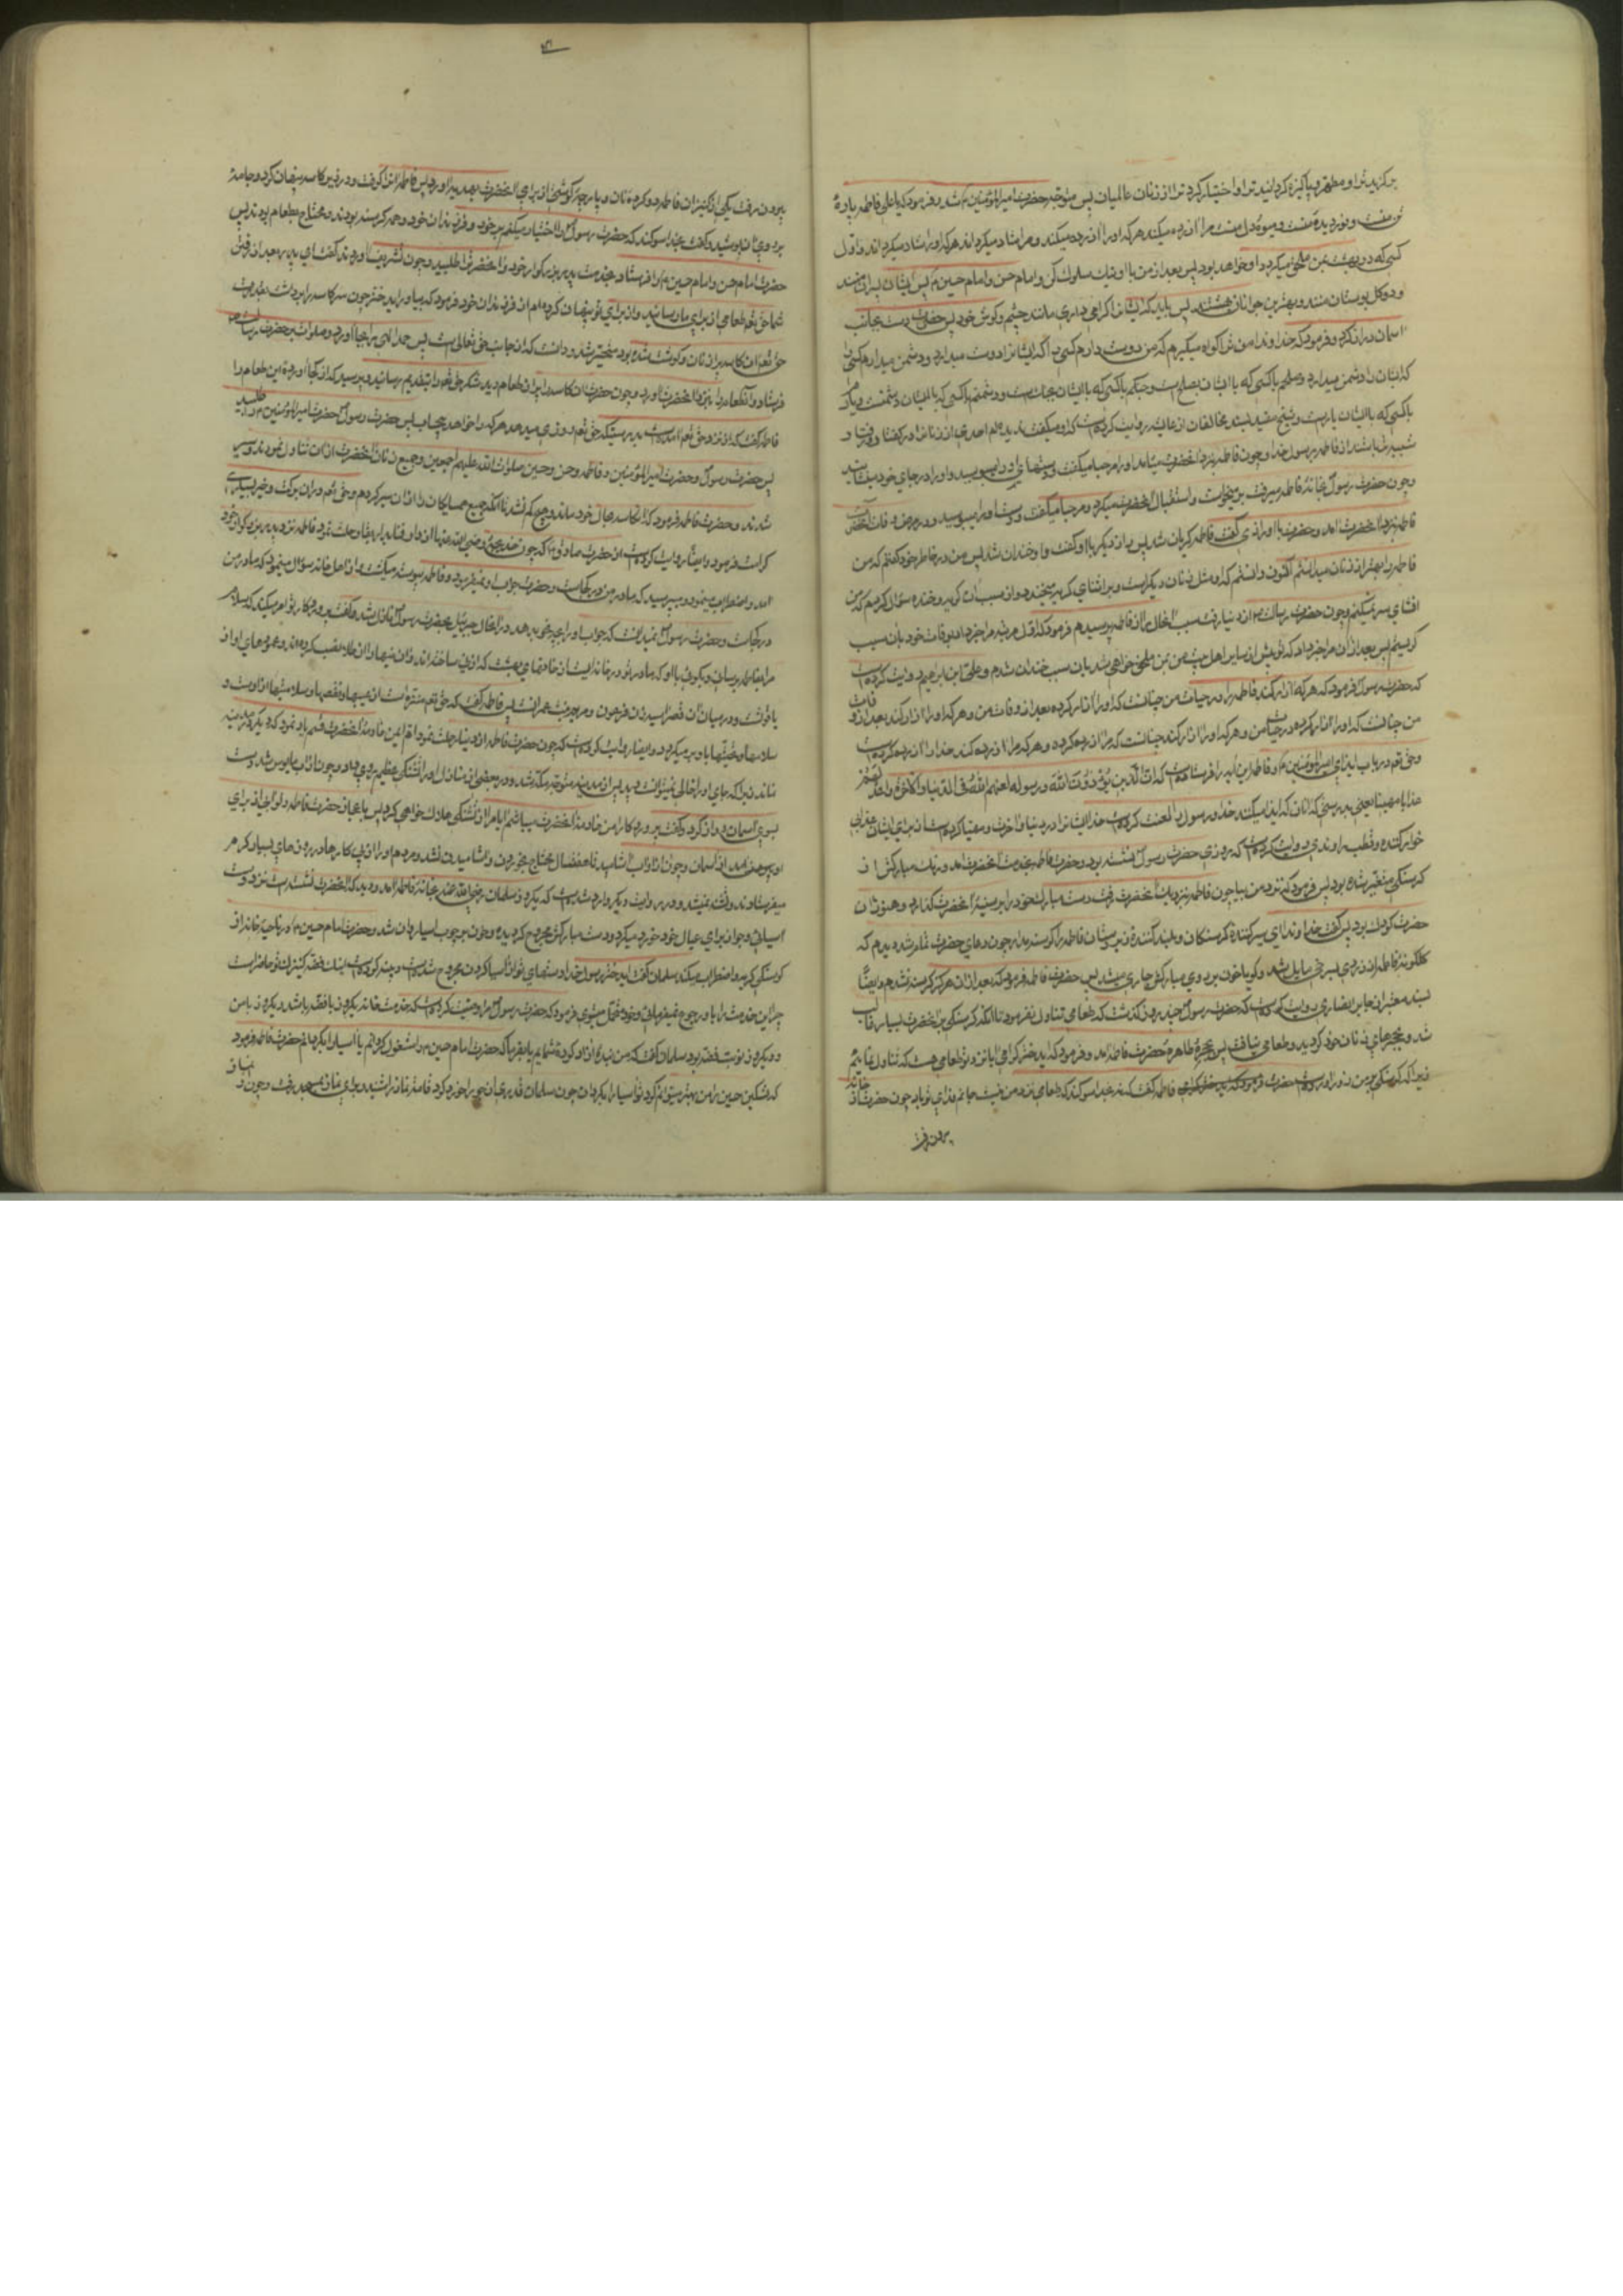 برگزید ترا و مطهر و پاکیزه گردانید ترا و اختیار کرد ترا از زنان عالمیان پس متوجه حضرت امیرالمؤمنین شد و فرمود که یا علی فاطمه پارهٔ
تن منست و نور دیدهٔ منست و میوهٔ دل منست مرا آزرده میکند هر که او را آزرده میکند و مرا شاد میگرداند هر که او را شاد میگرداند و اول
کسی که در بهشت بمن ملحق میگردد او خواهد بود پس بعد از من با او نیک سلوک کن و امام حسن و امام حسین پس ایشان پسران منند
و دو گل بوستان منند و بهترین جوانان بهشتند پس باید که ایشانرا گرامی داری مانند چشم و گوش خود پس حضرت دست بجانب
آسمان دراز کرد و فرمود که خداوندا من ترا گواه میگیرم که من دوست دارم کسی را که ایشانرا دوست میدارد و دشمن میدارم کسی را
که ایشان را دشمن میدارد و صلحم با کسی که با ایشان بصلح است و جنگم با کسی که با ایشان بجنگ است و دشمنم با کسی که با ایشان دشمنست و یارم
با کسی که با ایشان یارست و شیخ مفید بسند مخالفان از عایشه روایت کرده است که او میگفت ندیدم احدی از زنان را در گفتار و رفتار
شبیه‌تر باشد از فاطمه برسول خدا و چون فاطمه بنزد آنحضرت می‌آمد او را مرحبا میگفت و دستهای او را میبوسید و او را در جای خود مینشانید
و چون حضرت رسول بخانهٔ فاطمه میرفت بر میخواست و استقبال آنحضرت میکرد و مرحبا میگفت و دستهای او را میبوسید و در مرض وفات آنحضرت
فاطمه بنزد آنحضرت آمد و حضرت با او رازی گفت فاطمه گریان شد پس راز دیگر با او گفت و او خندان شد پس من در خاطر خود گفتم که من
فاطمه را بهتر از زنان میدانستم اکنون دانستم که او مثل زنان دیگر است و در اثنای گریه میخندد و از سبب آن گریه و خنده سؤال کردم گفت من
افشای سر نمیکنم و چون حضرت رسالت از دنیا رفت سبب آنحال را از فاطمه پرسیدم فرمود که اول مرتبه مرا خبر داد بوفات خود بآن سبب
گریستم پس بعد از آن مرا خبر داد که تو پیش از سایر اهل بیت من بمن ملحق خواهی شد بآن سبب خندان شدم و علی بن ابراهیم روایت کرده است
که حضرت رسول فرمود که هر که آزار کند فاطمه را در حیات من چنانست که او را آزار کرده بعد از وفات من و هر که او را آزار کند بعد از وفات
من چنانست که او را آزار کرده در حیات من و هر که او را آزار کند چنانست که مرا آزرده کرده و هر که مرا آزرده کند خدا را آزرده کرده است
و حق تعالی در باب ایذای امیرالمؤمنین و فاطمه این آیه را فرستاده است که ان الذین یؤذون الله و رسوله لعنهم الله فی الدنیا و الآخرة و اعد لهم
عذابا مهینا یعنی بدرستی که آنان که ایذا میکنند خدا و رسول را لعنت کرده است خدا ایشانرا در دنیا و آخرت و مهیا کرده است از برای ایشان عذابی
خوار کننده و قطب راوندی روایت کرده است که روزی حضرت رسول نشسته بود و حضرت فاطمه بخدمت آنحضرت آمد و رنگ مبارکش از
گرسنگی متغیر شده بود پس فرمود که نزدیک من بیا چون فاطمه نزدیک آنحضرت رفت دست مبارک خود را بر سینهٔ آنحضرت گذارد و هنوز آن
حضرت کودک بود پس گفت خداوندا ای سیر کنندهٔ گرسنگان و بلند کنندهٔ پستان فاطمه را گرسنه مدار چون دعای حضرت تمام شد دیدم که
گلگونهٔ فاطمه از زردی بسرخی مایل شد و گویا خون بر روی مبارکش جاری میشد پس حضرت فاطمه فرمود که بعد از آن هرگز گرسنه نشدم و ایضاً
بسند معتبر از جابر انصاری روایت کرده است که حضرت رسول چند روز گذشت که طعامی تناول نفرمود تا آنکه گرسنگی بر آنحضرت بسیار غالب
شد و بحجره‌های زنان خود گردید و طعامی نیافت پس بحجرهٔ طاهرهٔ حضرت فاطمه آمد و فرمود که ای دختر گرامی آیا نزد تو طعامی هست که تناول نمایم
زیرا که گرسنگی بر من زور آورده است فاطمه گفت که نه بخدا سوگند که طعامی نزد من نیست جانم فدای تو باد چون حضرت از خانه
بیرون رفت
بیرون رفت یکی از کنیزان فاطمه دو گردهٔ نان و پارچهٔ گوشتی از برای آنحضرت بهدیه آورد پس فاطمه آنرا گرفت و در زیر کاسه پنهان کرد و جامهٔ
بر روی آن پوشید و گفت بخدا سوگند که حضرت رسول را اختیار میکنم بر خود و فرزندان خود و همه گرسنه بودند و محتاج بطعام بودند پس
حضرت امام حسن و امام حسین را فرستاد بخدمت پدر بزرگوار خود و آنحضرت را طلبید و چون تشریف آوردند گفت ای پدر بعد از رفتن
شما حق تعالی طعامی از برای ما رسانید و از برای تو پنهان کرده‌ام از فرزندان خود فرمود که بیاور ای دختر چون سر کاسه را برداشت بقدرت
حق تعالی آن کاسه پر از نان و گوشت شده بود متحیر شد و دانست که از جانب حق تعالی است پس حمد الهی را بجا آورد و صلوات بر حضرت رسالت
فرستاد و آنطعام را بنزد آنحضرت آورد و چون حضرت آن کاسه را پر از طعام دید شکر حق تعالی را بتقدیم رسانید و پرسید که از کجا آورده این طعام را
فاطمه گفت که از نزد حق تعالی آمده است بدرستیکه حق تعالی روزی میدهد هر که را خواهد بیحساب پس حضرت رسول حضرت امیرالمؤمنین را طلبید
پس حضرت رسول و حضرت امیرالمؤمنین و فاطمه و حسن و حسین صلوات الله علیهم اجمعین و جمیع زنان آنحضرت از آن تناول نمودند و سیر
شدند و حضرت فاطمه فرمود که آن کاسه بحال خود ماند و هیچ کم نشد تا آنکه جمیع همسایگان را از آن سیر کردم و حق تعالی در آن برکت و خیر بسیاری
کرامت فرمود و ایضاً روایت کرده است از حضرت صادق که چون خدیجه رضی الله عنها از دار فنا بدار بقا رحلت نمود فاطمه نزد پدر بزرگوار خود
آمد و اضطراب مینمود و میپرسید که مادر من در کجاست و حضرت جواب او نمیفرمود و فاطمه پیوسته میگشت و از اهل خانه سؤال مینمود که مادر من
در کجاست و حضرت رسول نمیدانست که جواب او را چه بگوید در آنحال جبرئیل بحضرت رسول نازل شد و گفت پروردگار تو امر میکند که سلام
مرا بفاطمه برسانی و بگوئی با او که مادر تو در خانه ایست از خانهای بهشت که از نی ساخته‌اند و آن نیها را از طلا نصب کرده‌اند و عمودهای او از
یاقوتست و در میان آن قصر آسیه زن فرعون و مریم بنت عمرانست پس فاطمه گفت که حق تعالی منزه است از عیبها و نقصها و سلامتیها از اوست و
سلامها و تحیتها باو بر میگردد و ایضاً روایت کرده است که چون حضرت فاطمه از دنیا رحلت نمود ام ایمن خادمهٔ آنحضرت قسم یاد نمود که دیگر در مدینه
نماند زیرا که جای او را خالی نمیتوانست دید پس از مدینه متوجه مکه شد و در بعضی از منازل او را تشنگی عظیم رو داد و چون از آب مایوس شد دست
بسوی آسمان دراز کرد و گفت پروردگارا من خادمهٔ آنحضرت میباشم آیا مرا از تشنگی هلاک خواهی کرد پس باعجاز حضرت فاطمه دلوی آب از برای
او بیرون آمد از آسمان و چون از آن آب آشامید تا هفت سال محتاج بخوردن و آشامیدن نشد و مردم او را از پی کارها در روزهای بسیار گرم
میفرستادند و تشنه نمیشد و در روایت دیگر وارد شده است که یکروز سلمان رضی الله عنه بخانهٔ فاطمه آمد و دید که آنحضرت نشسته است نزد دست
آسیائی و جو از برای عیال خود خورد میکرد و دست مبارکش مجروح گردیده و خون بر چوب آسیا روان شده و حضرت امام حسین در ناحیهٔ خانه از
گرسنگی گریه و اضطراب میکند سلمان گفت ای دختر رسول خدا دستهای تو از آسیا کردن مجروح شده است و اینک فضه کنیزک تو حاضر است
چرا این خدمت را باو رجوع نمیفرمائی و خود متحمل میشوی فرمود که حضرت رسول مرا وصیت کرده است که خدمت خانه یکروز با فضه باشد و یکروز با من
و دیروز نوبت فضه بود سلمان گفت که من بندهٔ آزاد کردهٔ شمایم یا بفرما که حضرت امام حسین را مشغول گردانم یا آسیا را بگردانم حضرت فاطمه فرمود
که تسکین حسین را من بهتر میتوانم کرد تو آسیا را بگردان چون سلمان قدری از جو را خورد کرد اقامهٔ نماز را شنید برای نماز بمسجد رفت و چون از نماز